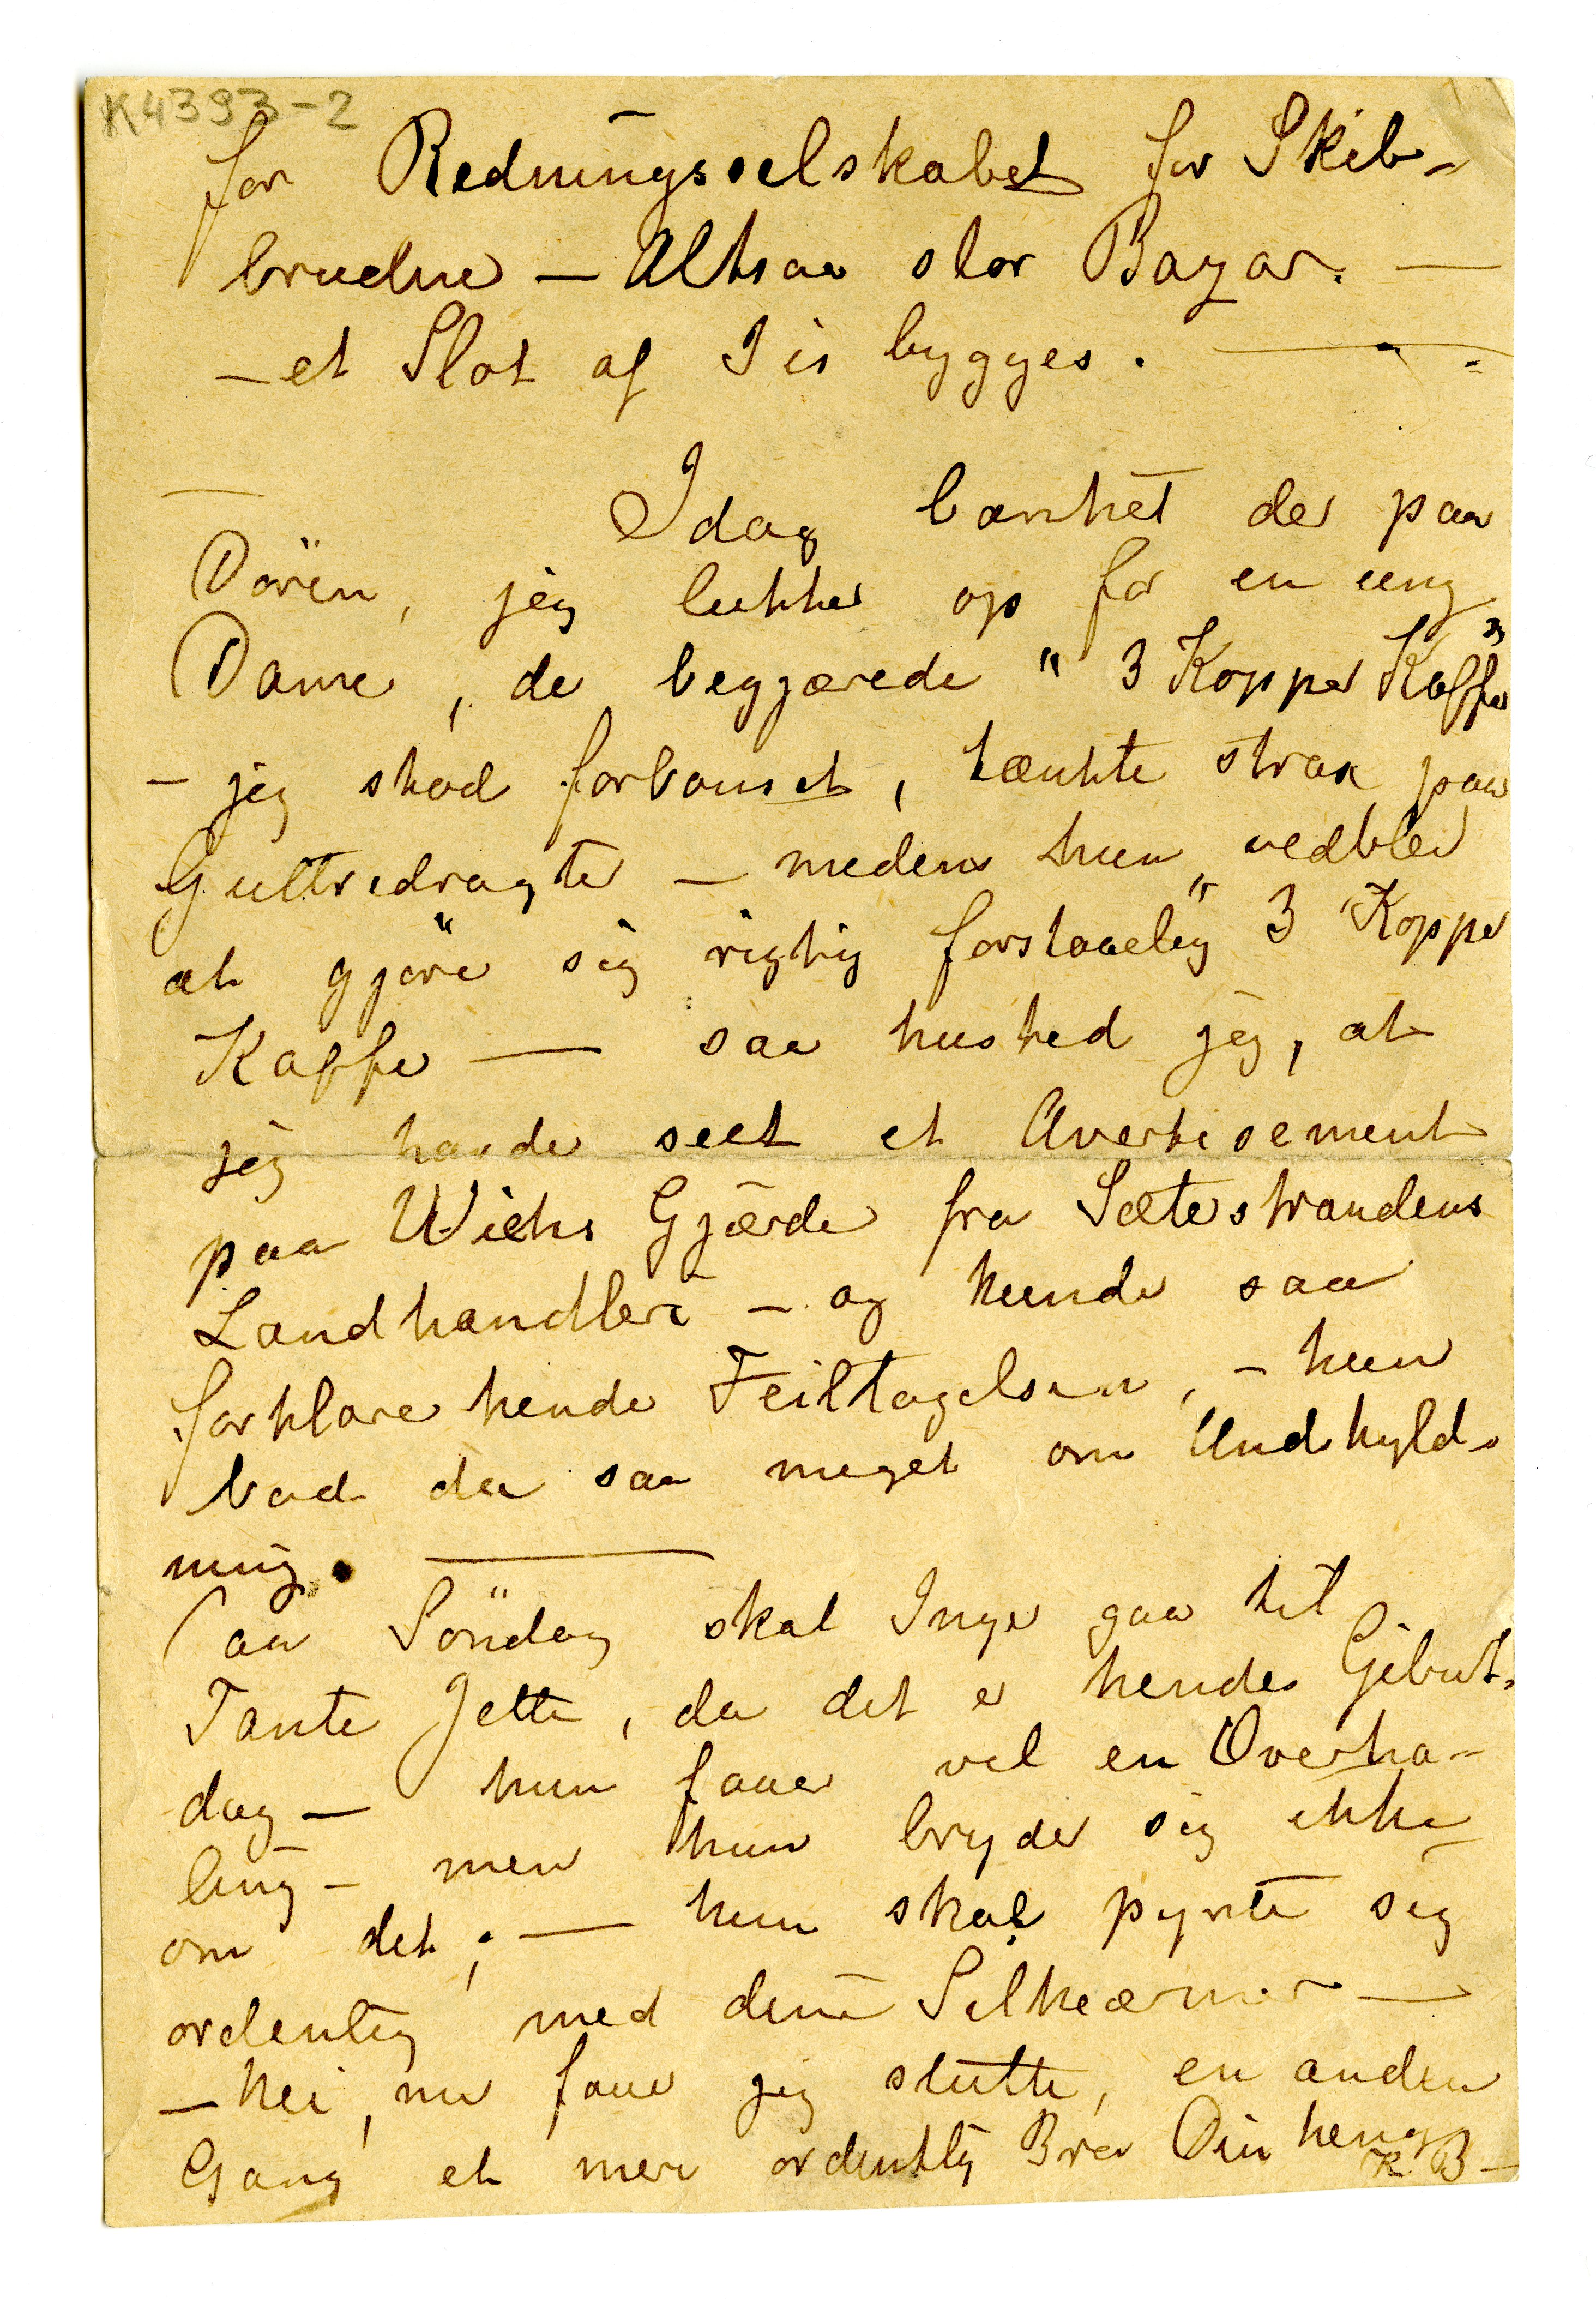 K4393-2
for Redningsselskabet for Skib-
brudne – Altsaa stor Bazar. —
– et Slot af Iis bygges. —
– Idag banket det paa
Dören, jeg lukker op for en ung
Dame, de begjærede "3 Kopper Kaffe"
– jeg stod forbauset, tænkte strax paa
Guttedragter – medens hun vedblev
at gjöre sig rigtig forstaaelig "3 Kopper
Kaffe — saa husked jeg, at
jeg havde seet et Avertisement
paa Wiehs Gjærde fra Sæterstrandens
Landhandleri – og kunde saa
forklare hende Feiltagelsen, – hun
bad da saa meget om Undskyld-
ning. —
Paa Söndag skal Inga gaa til
Tante Jette, da det er hendes Geburts
dag – hun faaer vel en Overha-
ling – men hun bryder sig ikke
om det; — hun skal pynte sig
ordentlig med dine Silkeærmer —
– Nei, nu faaer jeg slutte, en anden
Gang et mere ordentlig Brev Din heng
K. B –